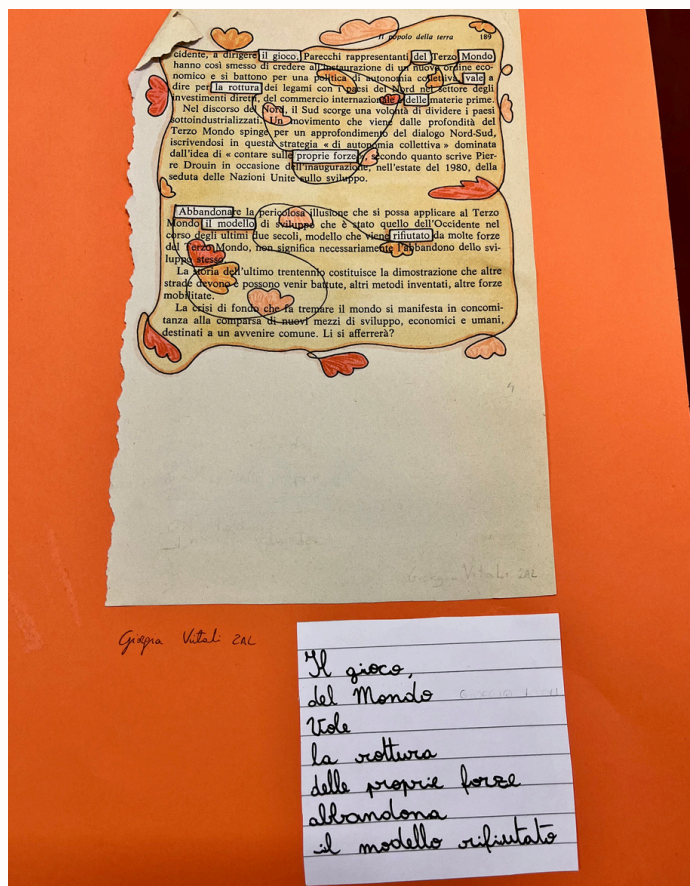 Il popolo della terra 189
cidente, a dirigere il gioco. Parecchi rappresentanti del Terzo Mondo
hanno così smesso di credere all'instaurazione di un nuovo ordine eco-
nomico e si battono per una politica di autonomia collettiva, vale a
dire per la rottura dei legami con i paesi del Nord nel settore degli
investimenti diretti, del commercio internazionale delle materie prime.
Nel discorso del Nord, il Sud scorge una volontà di dividere i paesi
sottoindustrializzati. Un movimento che viene dalle profondità del
Terzo Mondo spinge per un approfondimento del dialogo Nord-Sud,
iscrivendosi in questa strategia « di autonomia collettiva » dominata
dall'idea di « contare sulle proprie forze », secondo quanto scrive Pier-
re Drouin in occasione dell'inaugurazione, nell'estate del 1980, della
seduta delle Nazioni Unite sullo sviluppo.
Abbandonare la pericolosa illusione che si possa applicare al Terzo
Mondo il modello di sviluppo che è stato quello dell'Occidente nel
corso degli ultimi due secoli, modello che viene rifiutato da molte forze
del Terzo Mondo, non significa necessariamente l'abbandono dello svi-
luppo stesso.
La storia dell'ultimo trentennio costituisce la dimostrazione che altre
strade devono e possono venir battute, altri metodi inventati, altre forze
mobilitate.
La crisi di fondo che fa tremare il mondo si manifesta in concomi-
tanza alla comparsa di nuovi mezzi di sviluppo, economici e umani,
destinati a un avvenire comune. Li si afferrerà?
Giorgia Vitali 2AL
Giorgia Vitali 2AL
Il gioco,
del Mondo
Vale
la rottura
delle proprie forze
abbandona
il modello rifiutato